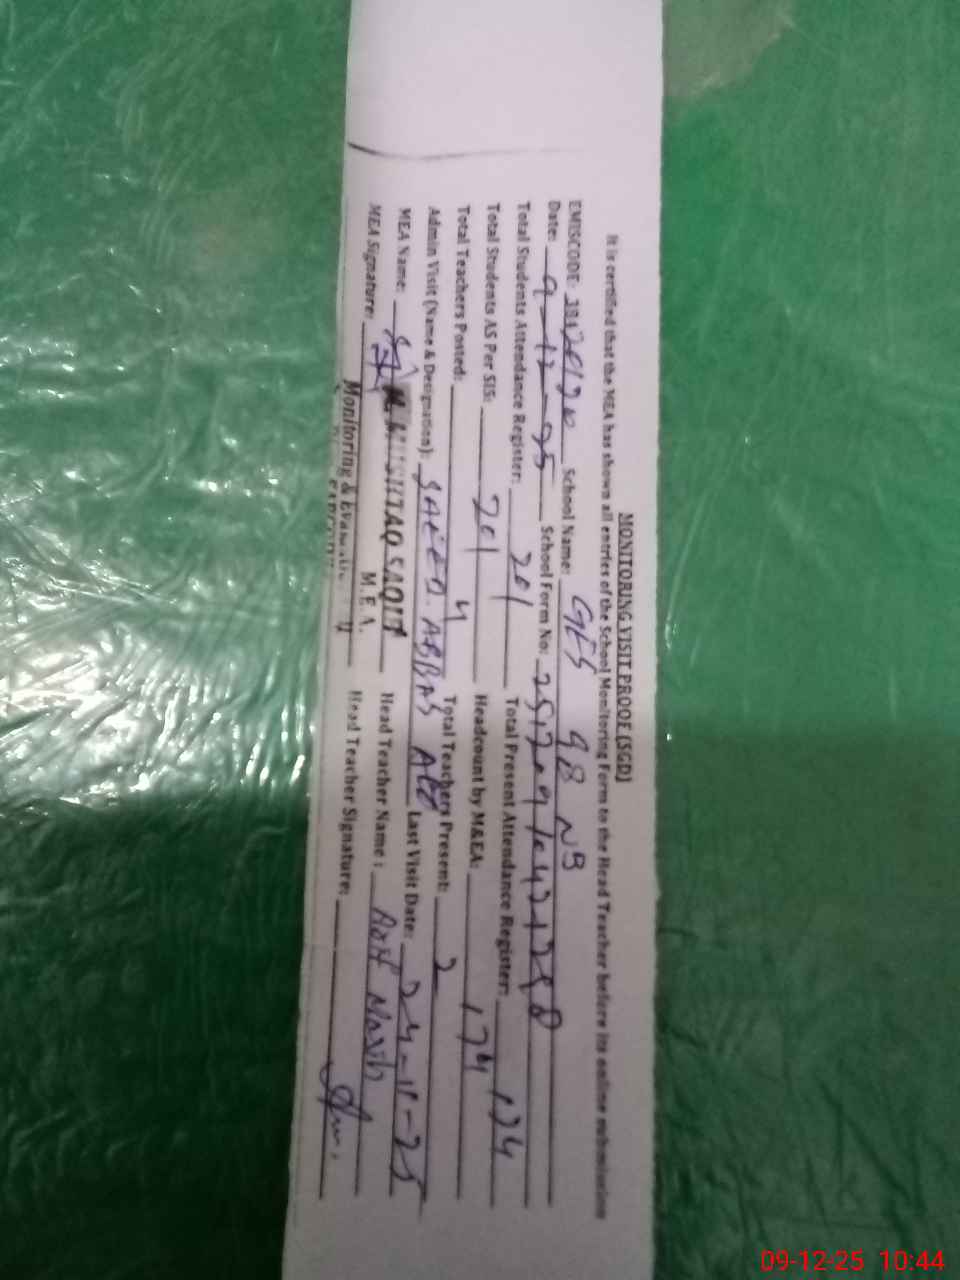 MONITORING VISIT PROOF (SGD)
It is certified that the MEA has shown all entries of the School Monitoring Form to the Head Teacher before its online submission
EMISCODE: School Name: GES 98 NB
Date: 9-12-25 School Form No:
Total Students Attendance Register: 201 Total Present Attendance Register: 174
Total Students AS Per SIS: 201 Headcount by M&EA: 174
Total Teachers Posted: 4 Total Teachers Present: 2
Admin Visit (Name & Designation): SAEED. ABBAS AEO Last Visit Date: 24-11-25
MEA Name: MUSHTAQ SAQIB Head Teacher Name: Masih
M.E.A.
MEA Signature: Head Teacher Signature:
Monitoring &
09-12-25 10:44